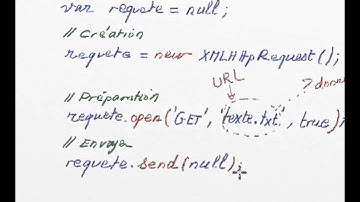 var requete = null;
// Création
requete = new XMLHttpRequest();
URL
// Préparation
requete.open('GET', 'texte.txt', true);
// Envoyer
requete.send(null);